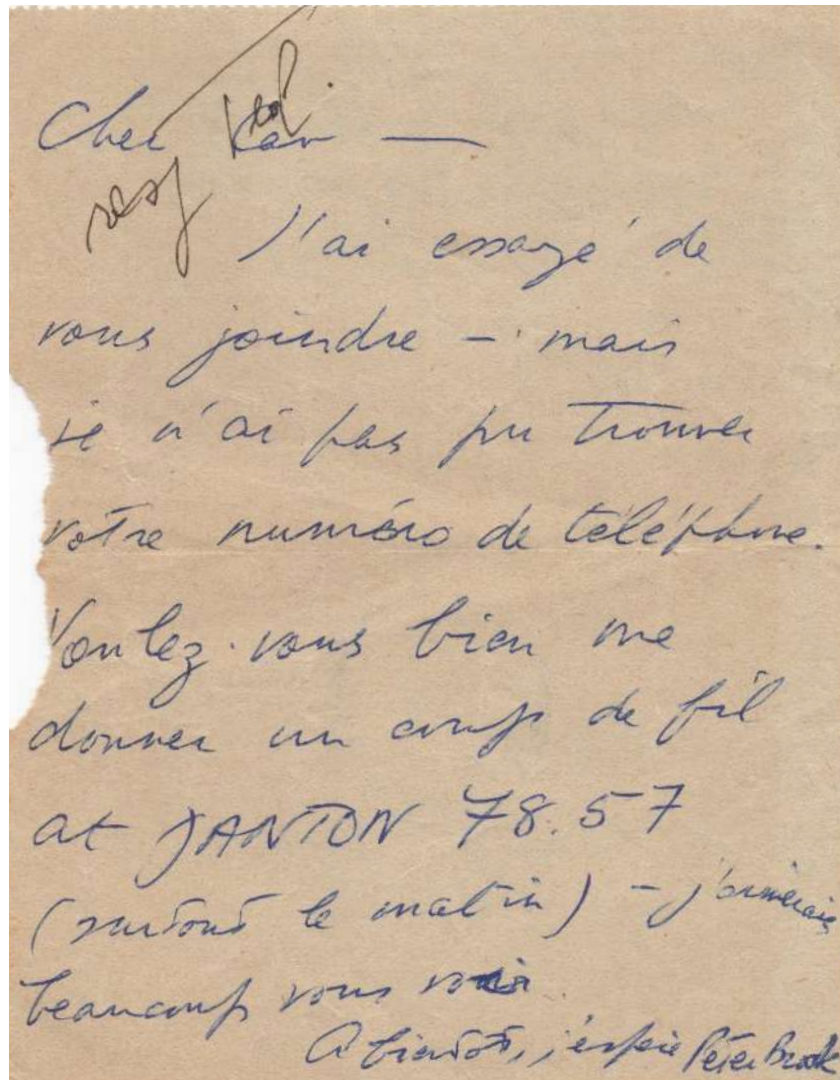 Cher
J'ai essayé de
vous joindre - mais
je n'ai pas pu trouver
votre numéro de téléphone.
Voulez-vous bien me
donner un coup de fil
at DANTON 78.57
(surtout le matin) - j'aimerais
beaucoup vous voir
A bientôt, j'espère Peter Brook